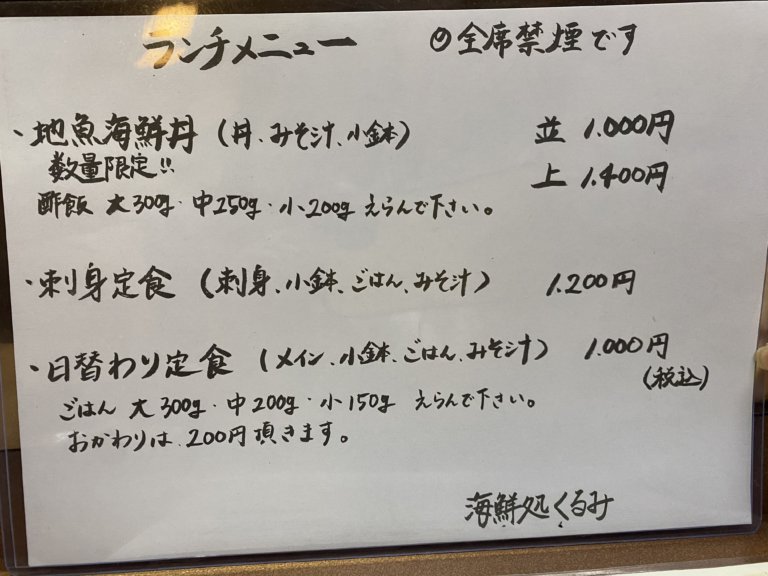 ランチメニュー ◎全席禁煙です
・地魚海鮮丼(丼、みそ汁、小鉢) 並 1.000円
数量限定!! 上 1.400円
酢飯 大300g・中250g・小200g えらんで下さい。
・刺身定食(刺身、小鉢、ごはん、みそ汁) 1.200円
・日替わり定食(メイン、小鉢、ごはん、みそ汁) 1.000円
(税込)
ごはん 大300g・中200g・小150g えらんで下さい。
おかわりは 200円頂きます。
海鮮処くるみ